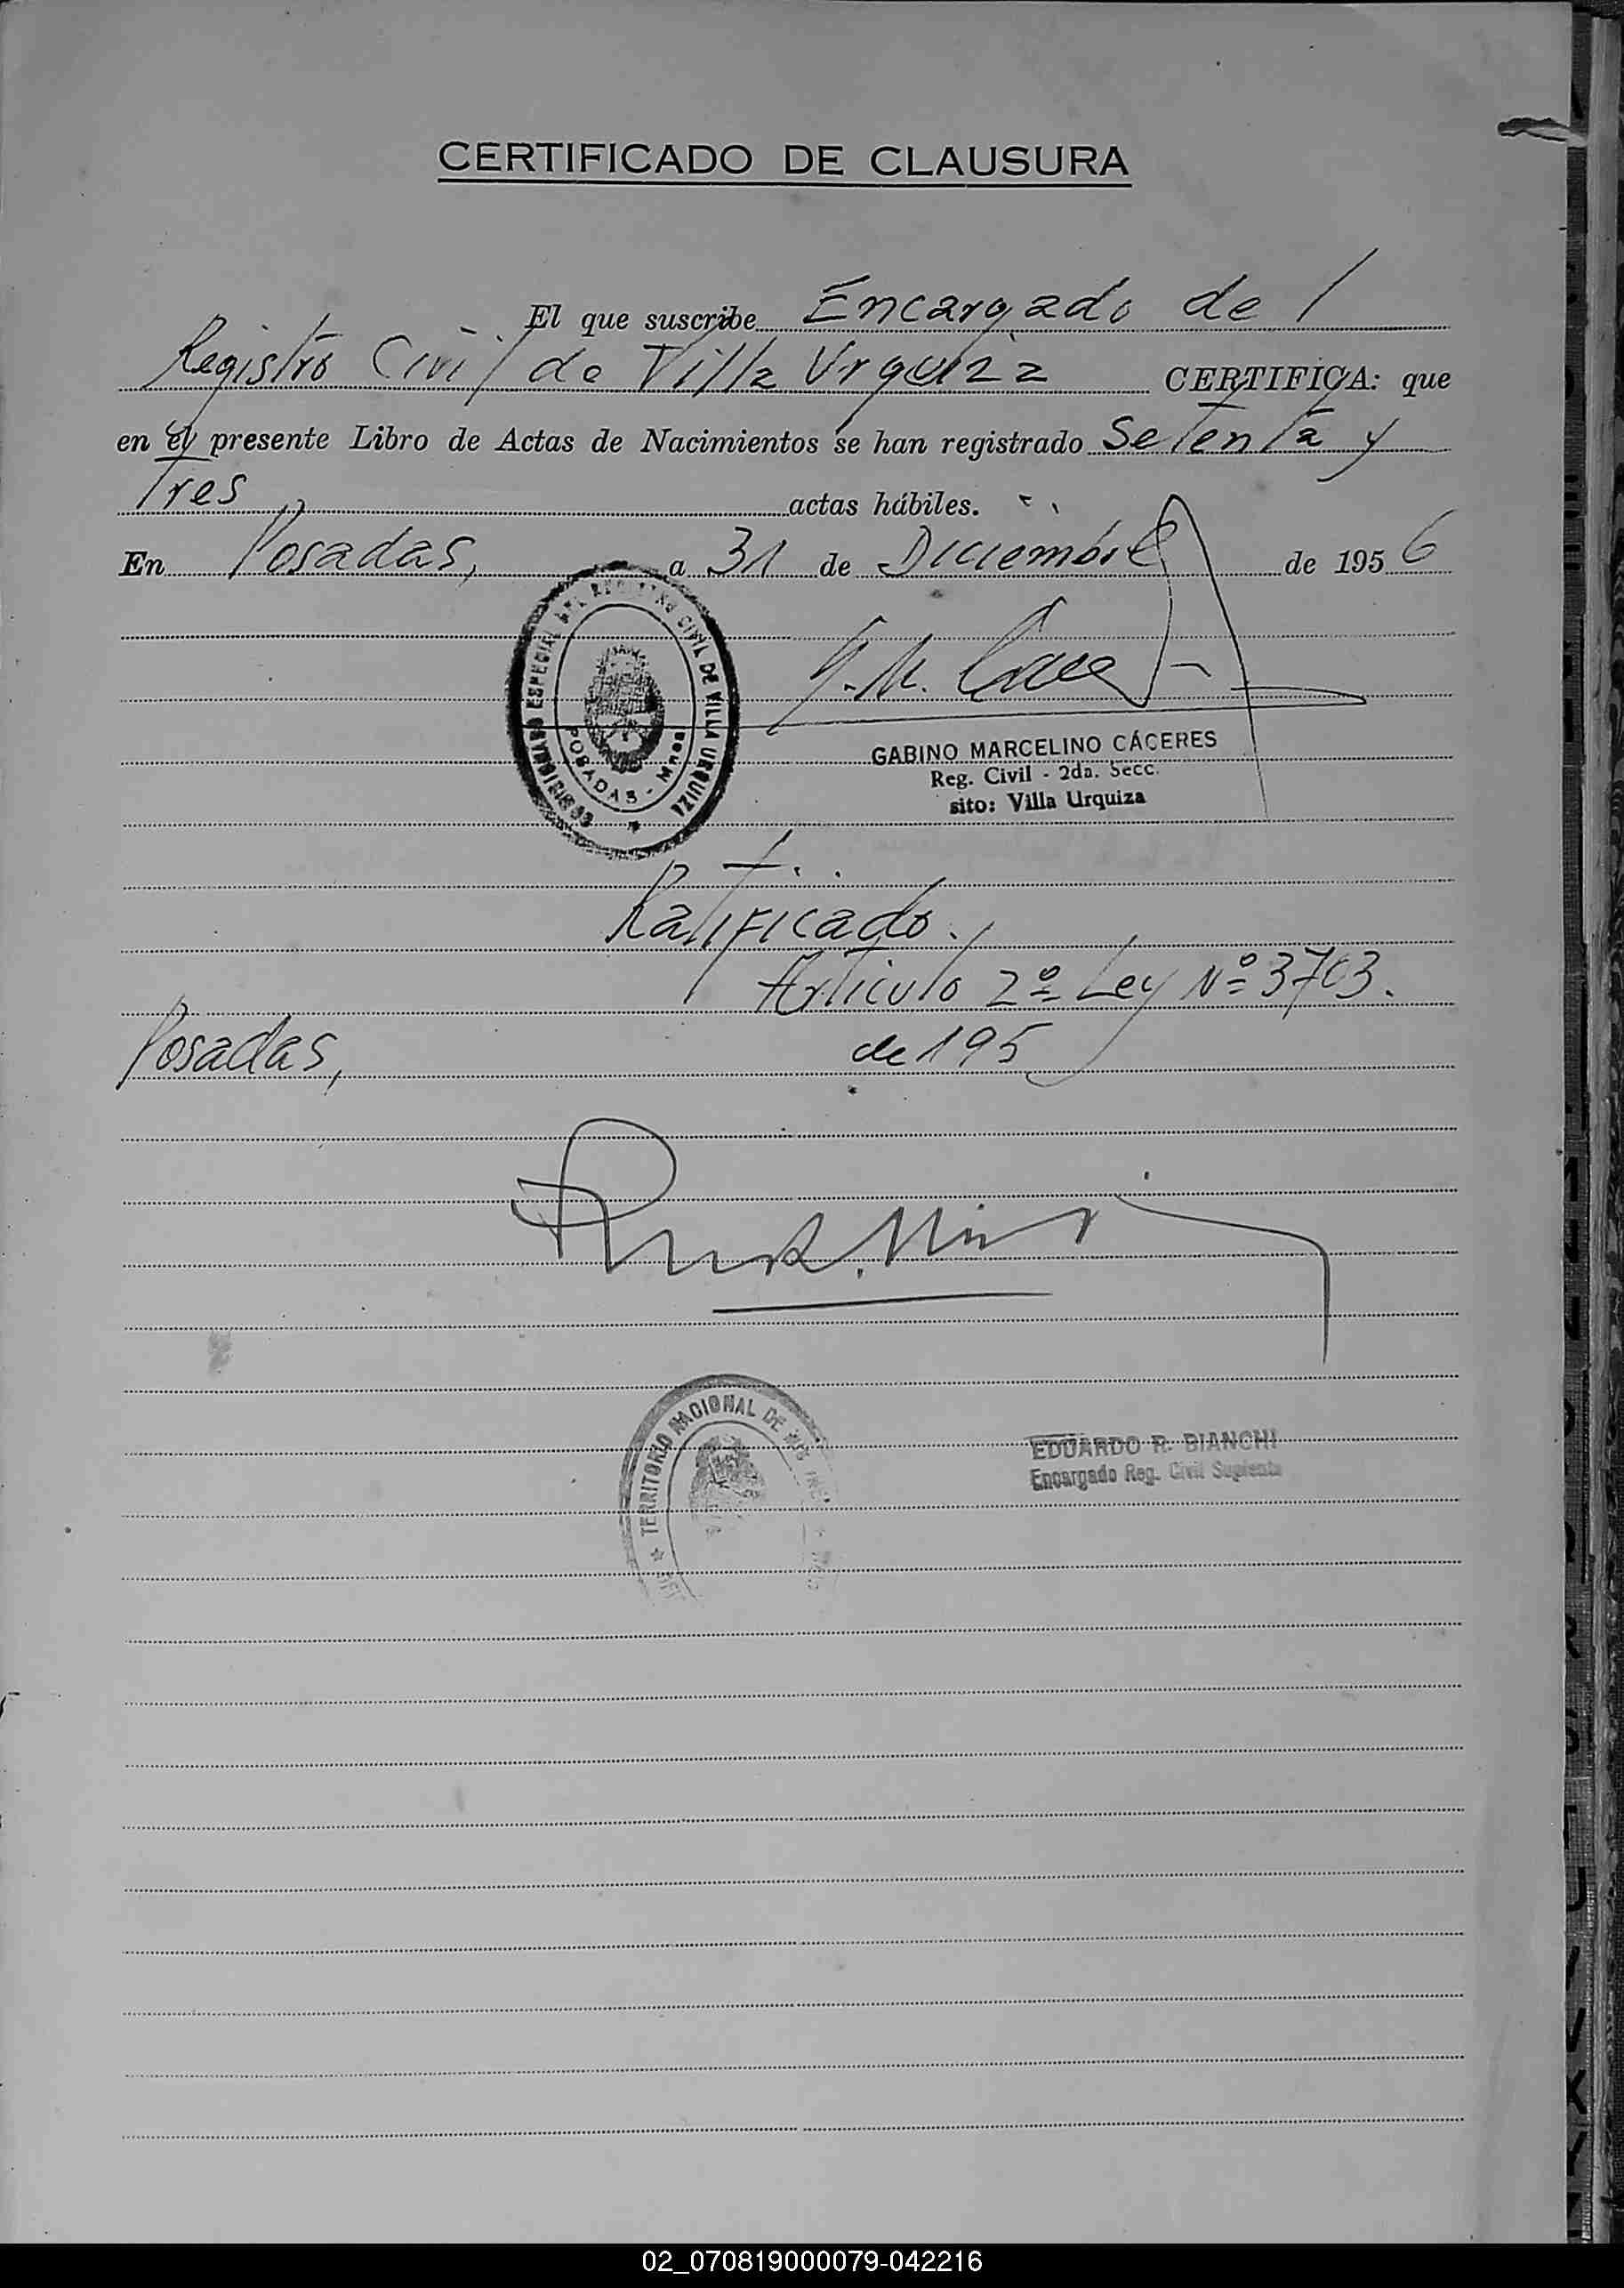 CERTIFICADO DE CLAUSURA
El que suscribe Encargado del
Registro Civil de Villa Urquiza CERTIFICA: que
en el presente Libro de Actas de Nacimientos se han registrado Setenta y
Tres actas hábiles.
En Posadas, a 31 de Diciembre de 1956
ESPECIAL DEL REGISTRO CIVIL DE VILLA URQUIZA
POSADAS - Mnes
GABINO MARCELINO CÁCERES
Reg. Civil - 2da. Secc.
sito: Villa Urquiza
Ratificado.
Artículo 2º Ley Nº 3703.
Posadas, de 195
TERRITORIO NACIONAL DE
EDUARDO R. BIANCHI
Encargado Reg. Civil Suplente
02_070819000079-042216